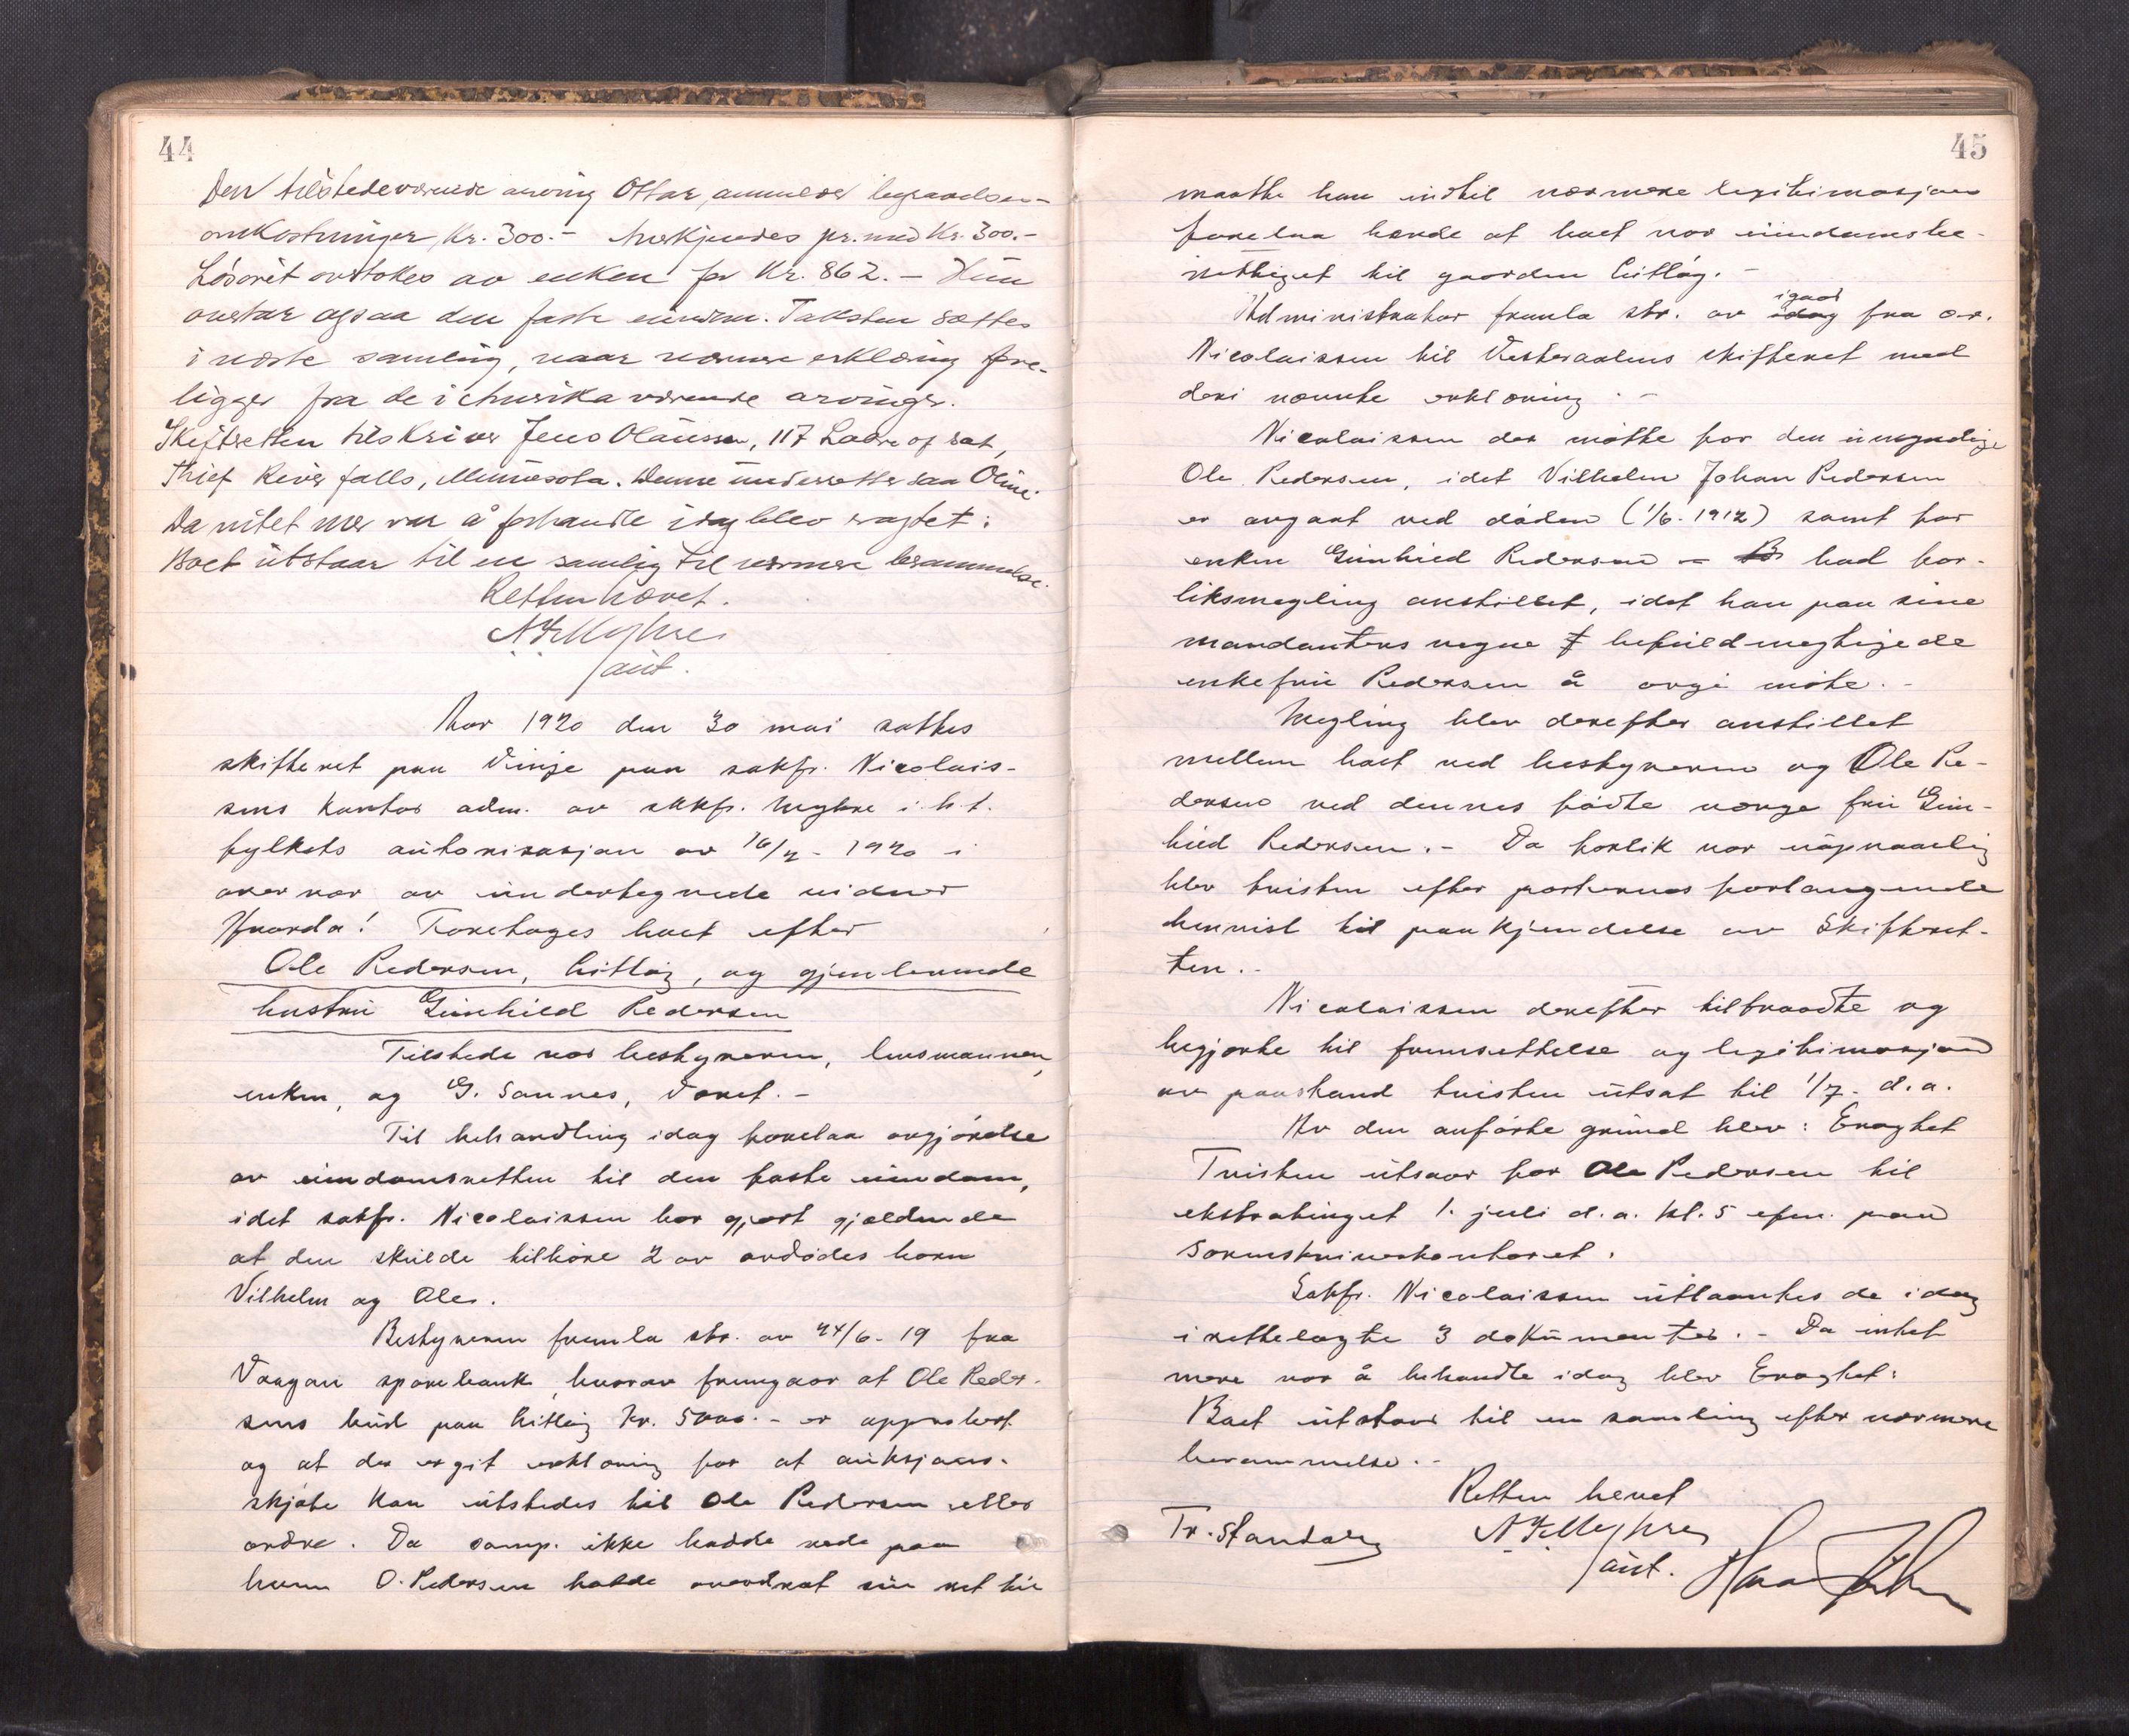 44
Den tilstedeværende arving Ottar, anmelder begravelses-
omkostninger, Kr. 300.- Anerkjendes pr. med Kr. 300.-
Løsøret overtokes av enken for Kr. 862.- Hun
overtar ogsaa den faste eiendom. Taksten sættes
i næste samling, naar nærmere erklæring fore-
ligger fra de i Amerika værende arvinger.
Skifteretten tilskriver Jens Olaussen, 117
Thief River falls, Minnesota. Denne underretter saa Oline.
Da intet mer var å forhandle idag blev eragtet:
Boet utstaar til en samling til nærmere berammelse.
Retten hævet.
N. Myhre
/aut.
Aar 1920 den 30 mai sattes
skifteret paa Vinje paa sakfr. Nicolais-
sens kontor adm. av sakfr. Myhre i h. t.
fylkets autorisasjon av 16/2 - 1920 i
overvær av undertegnede vidner
Hvorda! Foretoges boet efter
Ole Pedersen, Hitløg, og gjenlevende
hustru Gunhild Pedersen
Tilstede var bestyreren, lensmannen,
enken, og G. Sannes, Voret.-
Til behandling idag forelaa avgjørelse
av eiendomsretten til den faste eiendom,
idet sakfr. Nicolaissen har gjort gjældende
at den skulde tilhøre 2 av avdødes børn
Vilhelm og Ole.
Bestyreren fremla skr. av 24/6 - 19 fra
Vaagan sparebank, hvorav fremgaar at Ole Peder-
sens bud paa Hitløg kr. 5000.- er approbert
og at der er git erklæring for at auksjons-
skjøte kan utstedes til Ole Pedersen eller
ordre. Da samp. ikke hadde rede paa
hvem O. Pedersen hadde overdrat sin ret til
45
maatte han indtil nærmere legitimasjon
forelaa hævde at boet var eiendomsbe-
rettiget til gaarden Hitløg.-
igaar
Administrator fremla skr. av idag fra o.r.
Nicolaissen til Vesteraalens skifteret med
deri nævnte erklæring.-
Nicolaissen der møtte for den umyndige
Ole Pedersen, idet Vilhelm Johan Pedersen
er avgaat ved døden (1/6. 1912) samt for
enken Gunhild Pedersen - bad for-
liksmegling anstillet, idet han paa sine
mandanters vegne befuldmegtigede
enkefru Pedersen å avgi møte.-
Megling blev derefter anstillet
mellem boet ved bestyreren og Ole Pe-
dersen ved dennes fødte værge fru Gun-
hild Pedersen.- Da forlik var uopnaaelig
blev tvisten efter parternes forlangende
henvist til paakjendelse av Skifteret-
ten.-
Nicolaissen derefter tiltraadte og
begjærte til fremsettelse og legitimasjon
av paastand tvisten utsat til 1/7. d.a.
Av den anførte grund blev: Eragtet
Tvisten utsaar for Ole Pedersen til
ekstratinget 1. juli d.a. kl. 5 efm. paa
sorenskriverkontoret.
Sakfr. Nicolaissen utlaantes de idag
i rettelagte 3 dokumenter.- Da intet
mere var å behandle idag blev Eragtet:
Boet utstaar til en samling efter nærmere
berammelse.-
Retten hevet
Tr. Standaly N. Myhre
/aut.